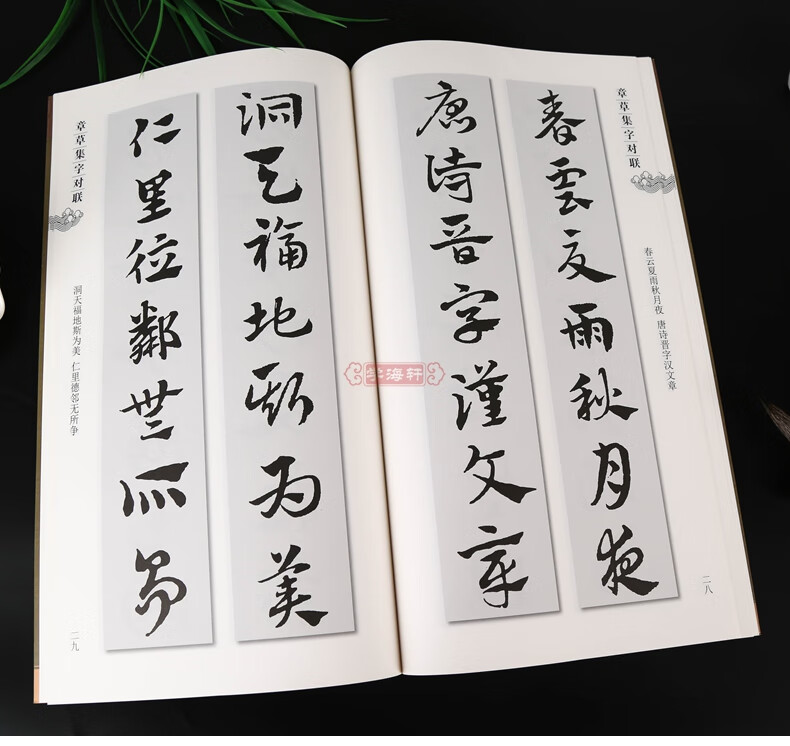 章草集字对联
春雲夏雨秋月夜
唐诗晋字漢文章
春云夏雨秋月夜 唐诗晋字汉文章
二八
章草集字对联
洞天福地斯为美
仁里德鄰無所争
洞天福地斯为美 仁里德邻无所争
二九
学海轩